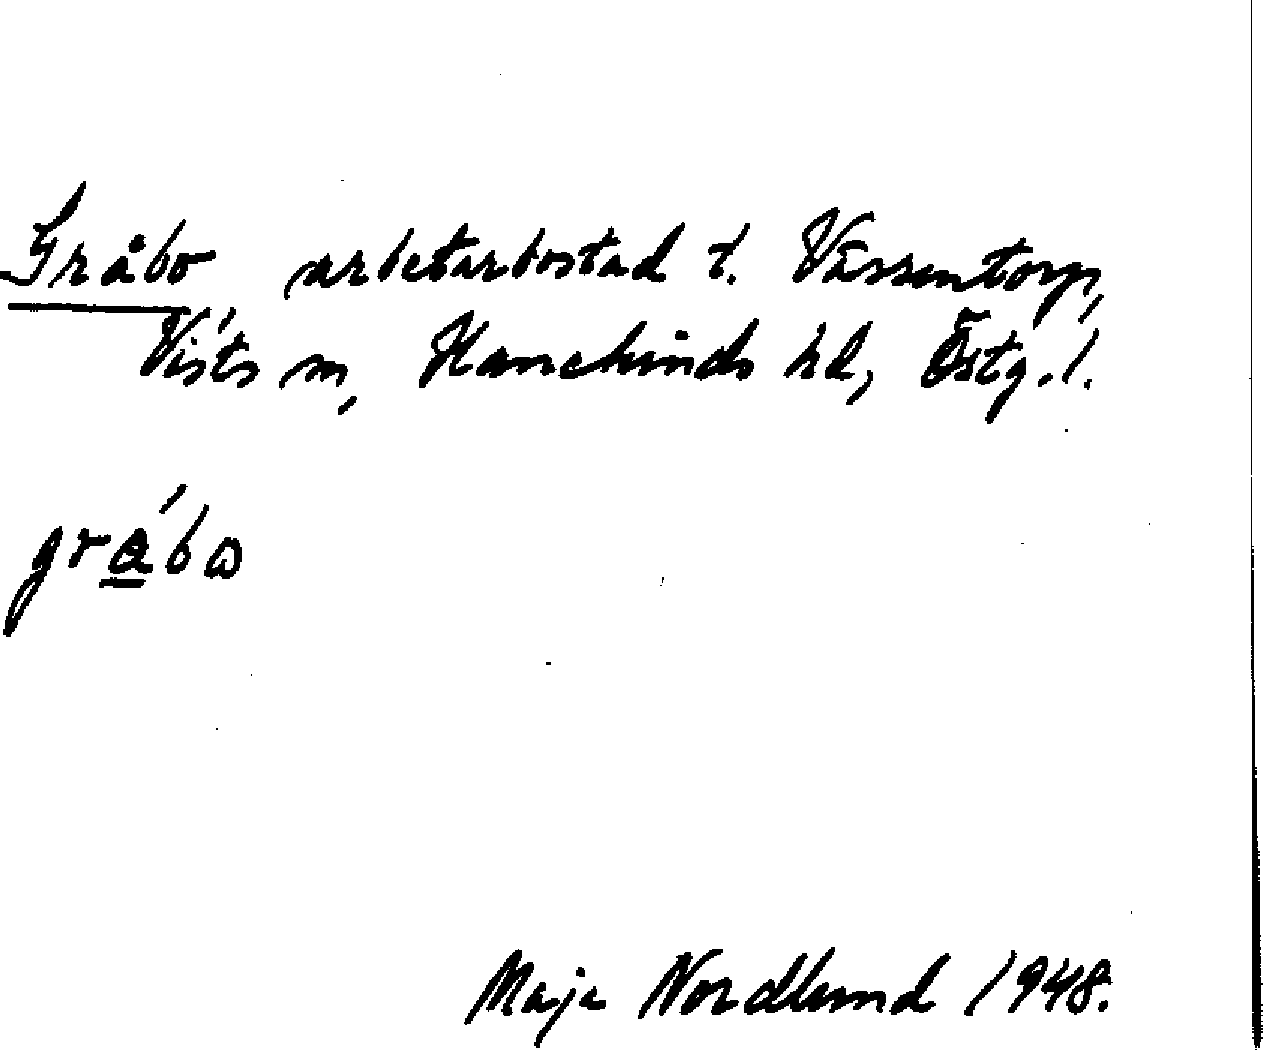 Gråbo, arbetarbostad t. Vässentorp,
Vists sn, Hanekinds hd, Östg. l.
grábω
Maja Nordlund 1948.